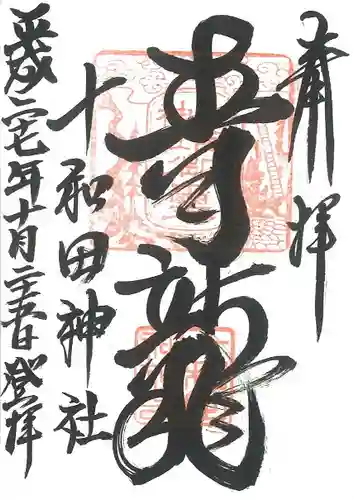 奉拝
青龍
十和田神社
平成二七年十月二十五日登拝